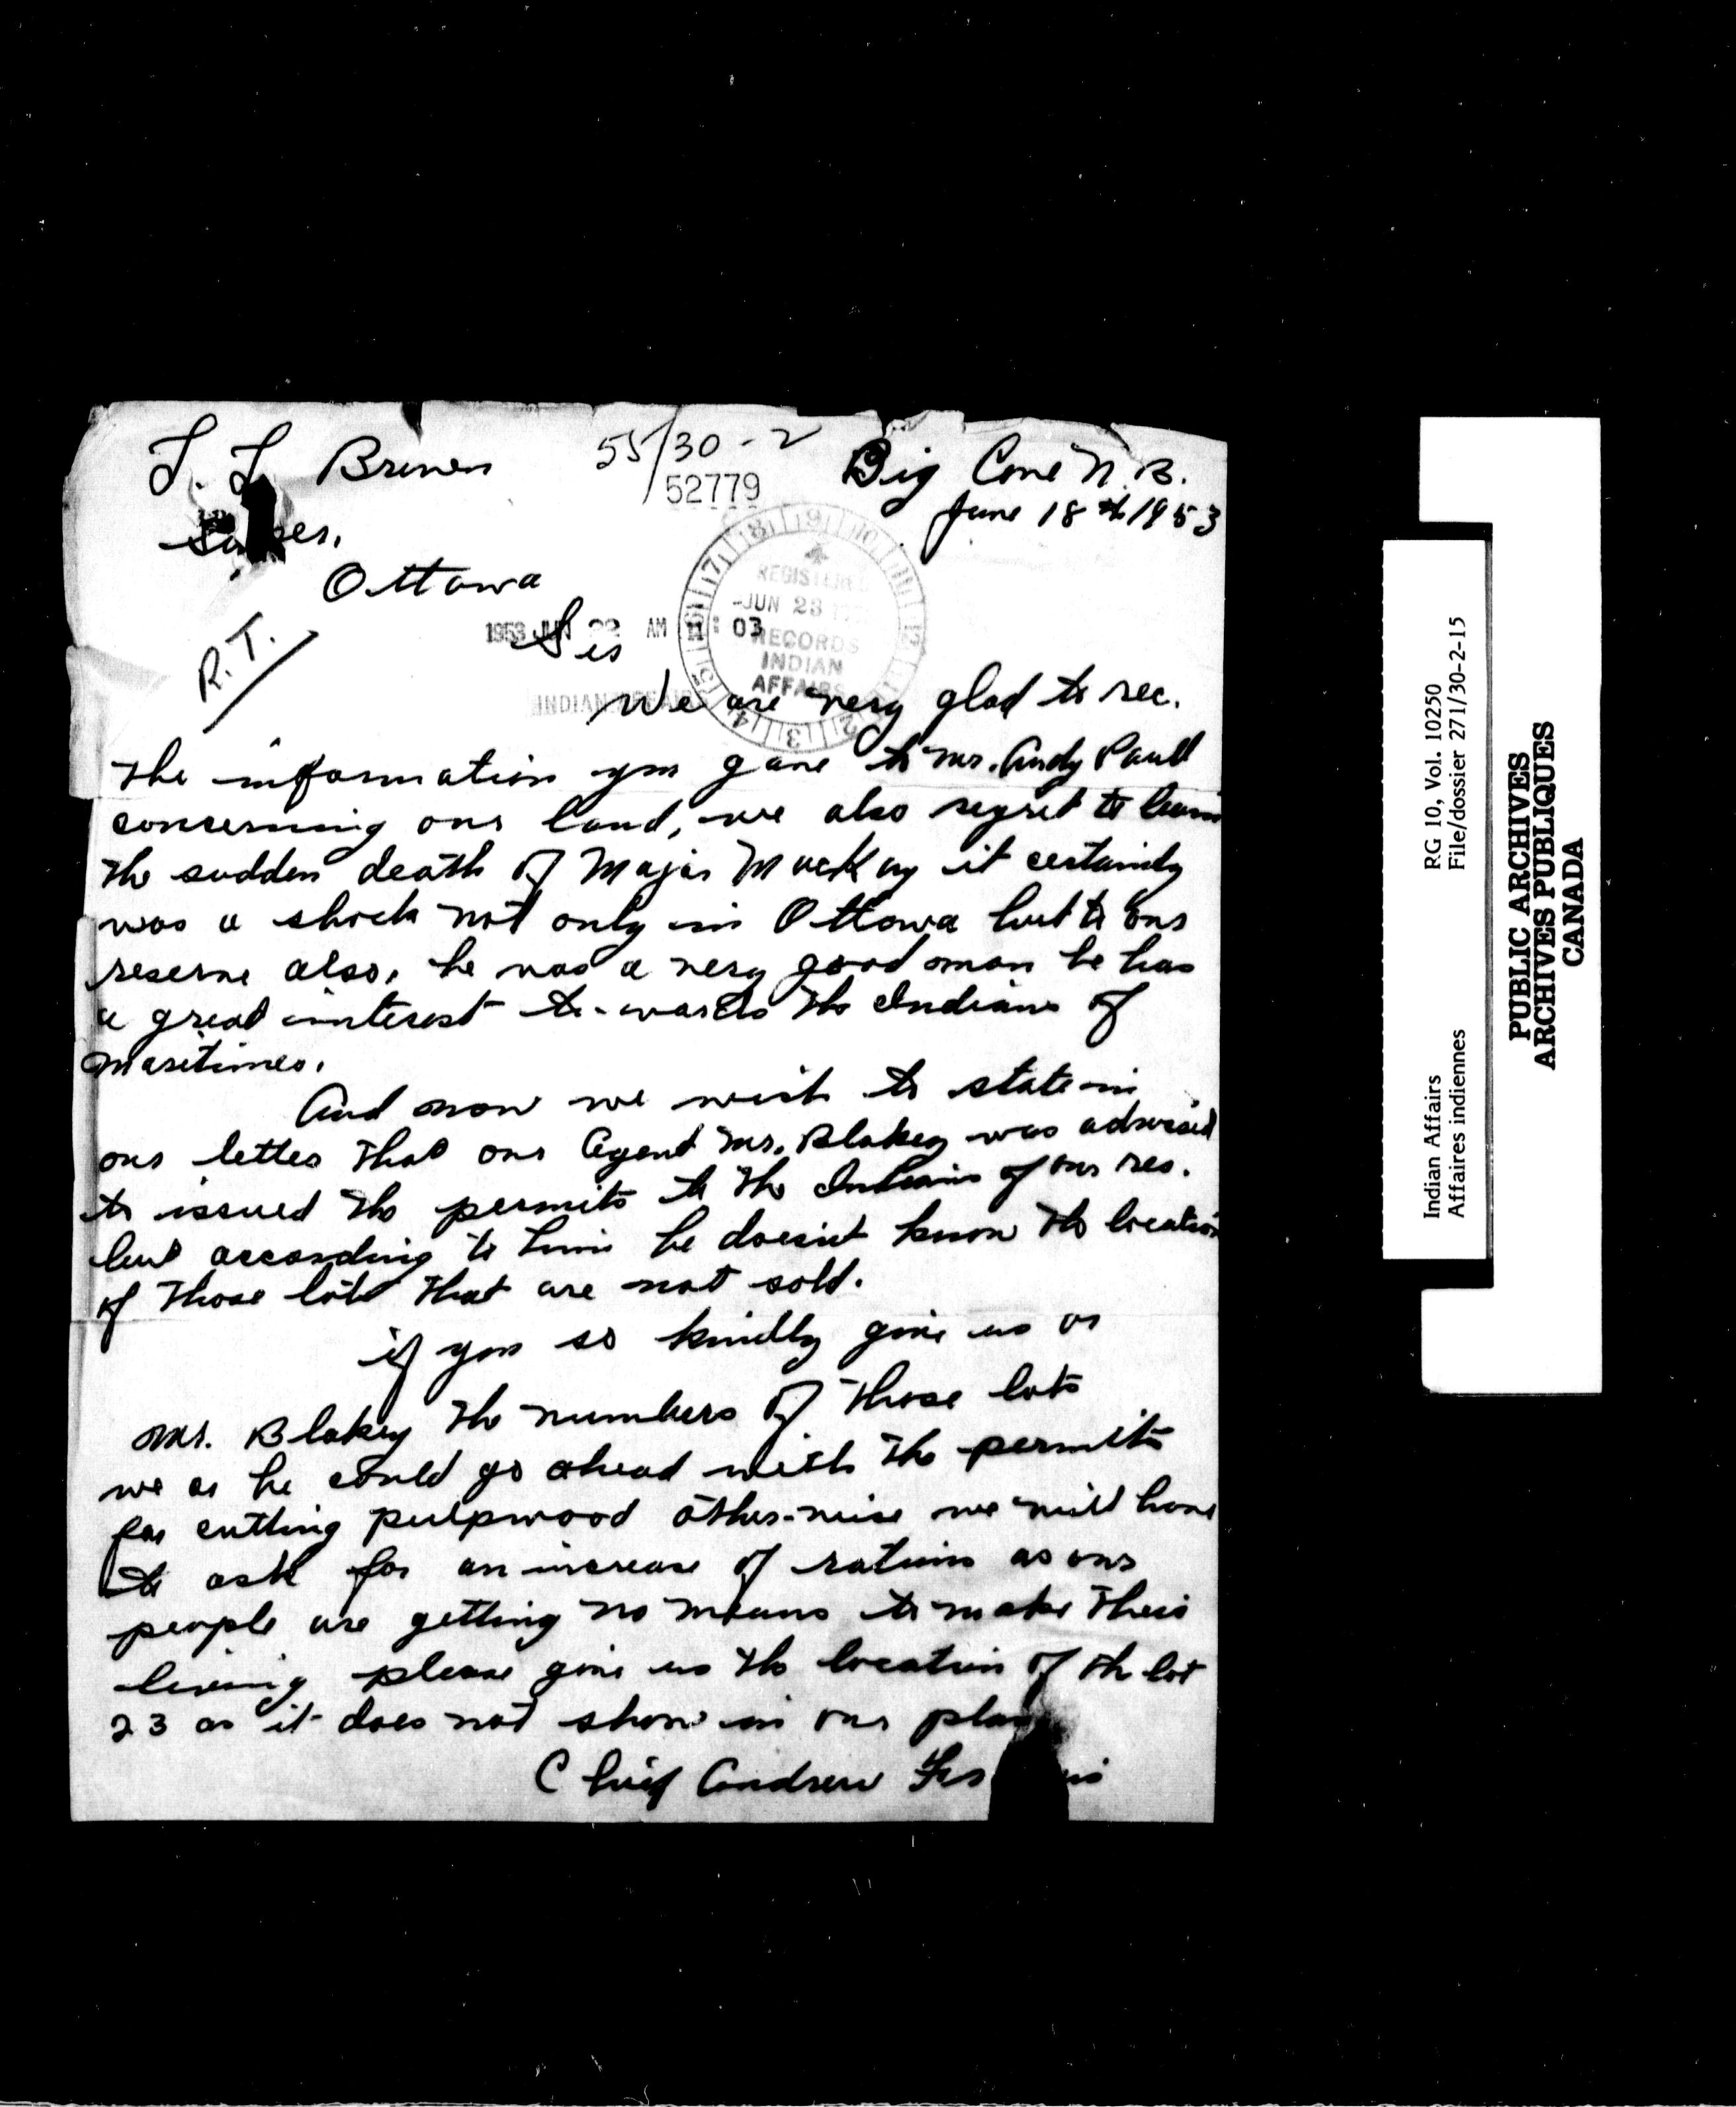 55/30-2
52779
Big Cove N.B.
June 18th 1953
Ottawa
R.T.
1953 JUN 22 AM 11:03
REGISTERED
JUN 23
RECORDS
INDIAN
AFFAIRS
INDIAN AFFAIRS
Sir
We are very glad to rec.
the information you gave to Mr. Andy Paull
concerning our land, we also regret to learn
the sudden death of Major MacKay it certainly
was a shock not only in Ottawa but to our
reserve also, he was a very good man he has
a great interest to-wards the Indians of
maritimes.
And now we wish to state in
our letter that our Agent Mr. Blakey was advised
to issued the permits to the Indians of our res.
but according to him he doesn't know the location
of those lots that are not sold.
if you so kindly give us or
Mr. Blakey the numbers of those lots
we or he could go ahead with the permits
for cutting pulpwood other-wise we will have
to ask for an increase of rations as our
people are getting no means to make their
living please give us the location of the lot
23 as it does not show in our plan
Chief Andrew
Indian Affairs RG 10, Vol. 10250
Affaires indiennes File/dossier 271/30-2-15
PUBLIC ARCHIVES
ARCHIVES PUBLIQUES
CANADA